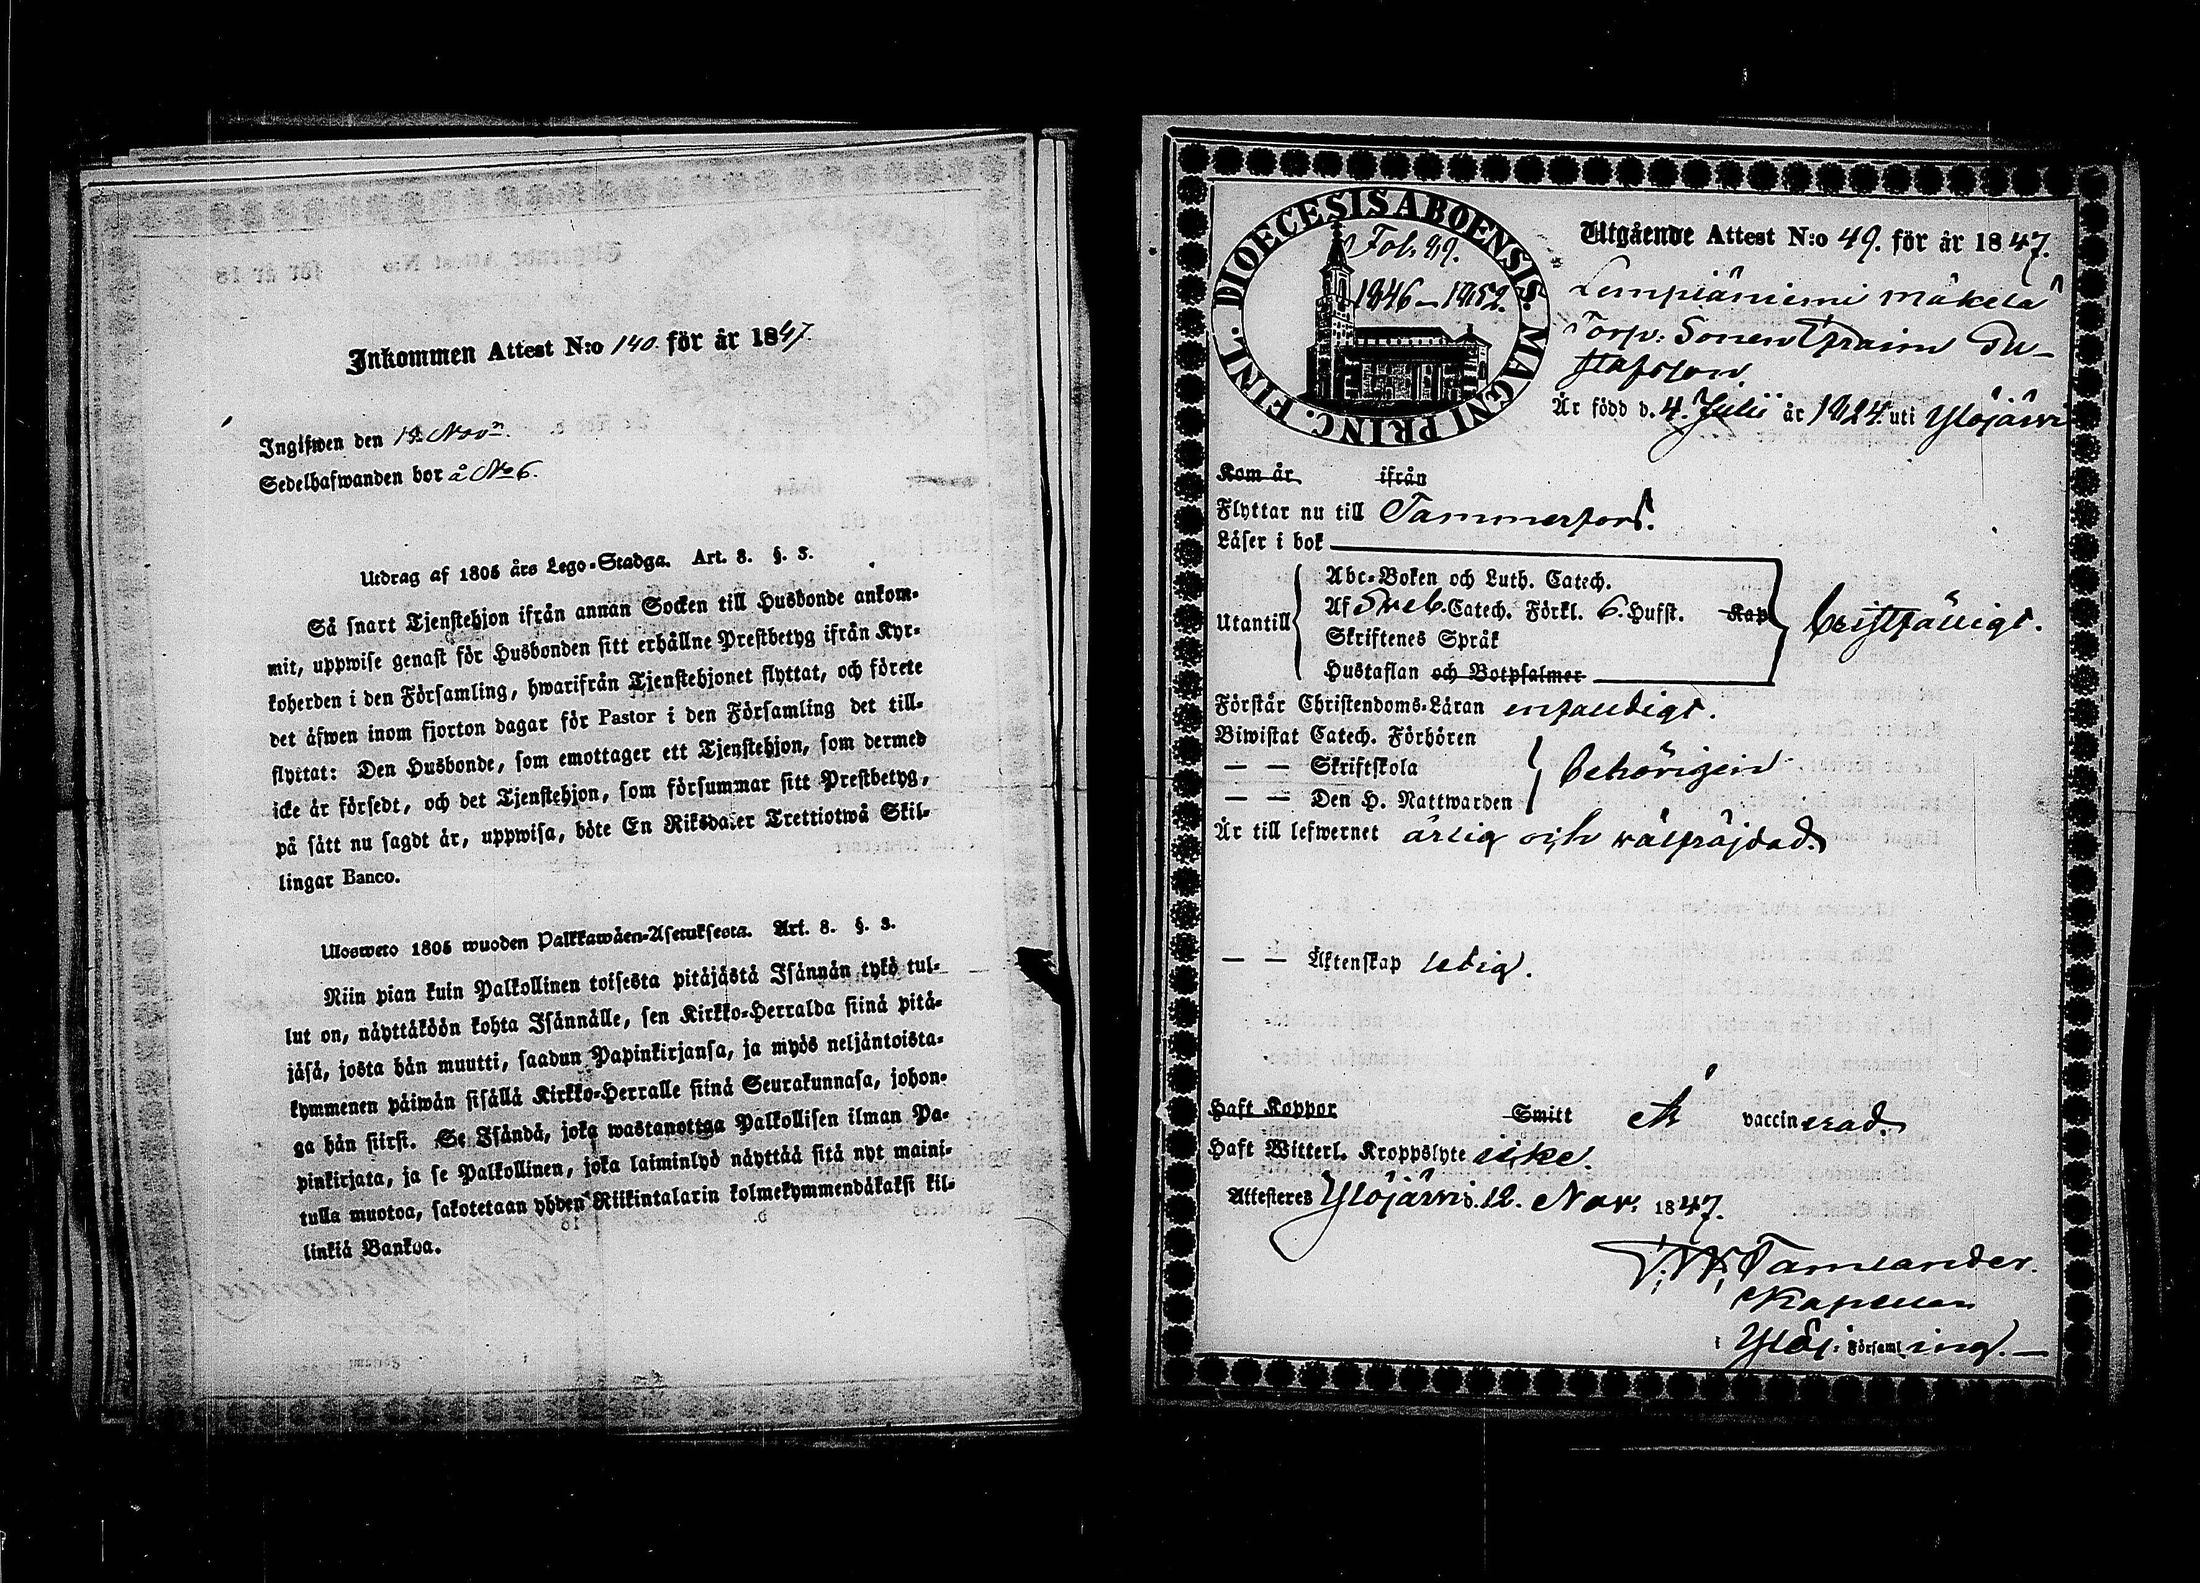 Inkommen Attest N:o 140 för år 1847.
Ingifwen den 19 Nov.
Sedelhafwanden bor å No 6.
Utdrag af 1805 års Lego-Stadga. Art. 8. §. 3.
Så snart Tjenstehjon ifrån annan Socken till Husbonde ankom-
mit, uppwise genast för Husbonden sitt erhållne Prestbetyg ifrån Kyr-
koherden i den Församling, hwarifrån Tjenstehjonet flyttat, och förete
det äfwen inom fjorton dagar för Pastor i den Församling det till-
flyttat: Den Husbonde, som emottager ett Tjenstehjon, som dermed
icke är försedt, och det Tjenstehjon, som försummar sitt Prestbetyg,
på sätt nu sagdt är, uppwisa, böte En Riksdaler Trettiotwå Skil-
lingar Banco.
Ulosweto 1805 wuoden Palkkawäen-Asetuksesta. Art. 8. §. 3.
Niin pian kuin Palkollinen toisesta pitäjästä Isännän tykö tul-
lut on, näyttäköön kohta Isännälle, sen Kirkko-Herralda siinä pitä-
jäsä, josta hän muutti, saadun Papinkirjansa, ja myös neljäntoista-
kymmenen päiwän sisällä Kirkko-Herralle siinä Seurakunnasa, johon-
ga hän siirsi. Se Isändä, joka wastanottaa Palkollisen ilman Pa-
pinkirjata, ja se Palkollinen, joka laiminlyö näyttää sitä nyt maini-
tulla muotoa, sakotetaan yhden Riikintalarin kolmekymmendäkaksi kil-
linkiä Bankoa.
DIOECESIS ABOENSIS. MAGNI PRINC. FINL.
Fol. 99.
1846–1852.
Utgående Attest N:o 49. för år 1847.
Lempiäniemi Mäkelä
Torp: Sonen Efraim Gu-
stafsson
Är född d. 4. Julii år 1824. uti Ylöjärvi
Kom år ifrån
Flyttar nu till Tammerfors.
Läser i bok
Abc-Boken och Luth. Catech.
Utantill Af Sveb. Catech. Förkl. 6. Hufst. Kap
Skriftenes Språk
Hustaflan och Botpsalmer
bristfälligt.
Förstår Christendoms-Läran enfaldigt.
Biwistat Catech. Förhören
— — Skriftskola behörigen
— — Den H. Nattwarden
Är till lefwernet ärlig och välfräjdad.
— — Äktenskap ledig.
Haft Koppor Smitt är vaccinerad.
Haft Witterl. Kroppslyte icke.
Attesteres Ylöjärvi d. 12. Nov. 1847.
Tamlander.
Kapellan
i Ylöj. Församling.